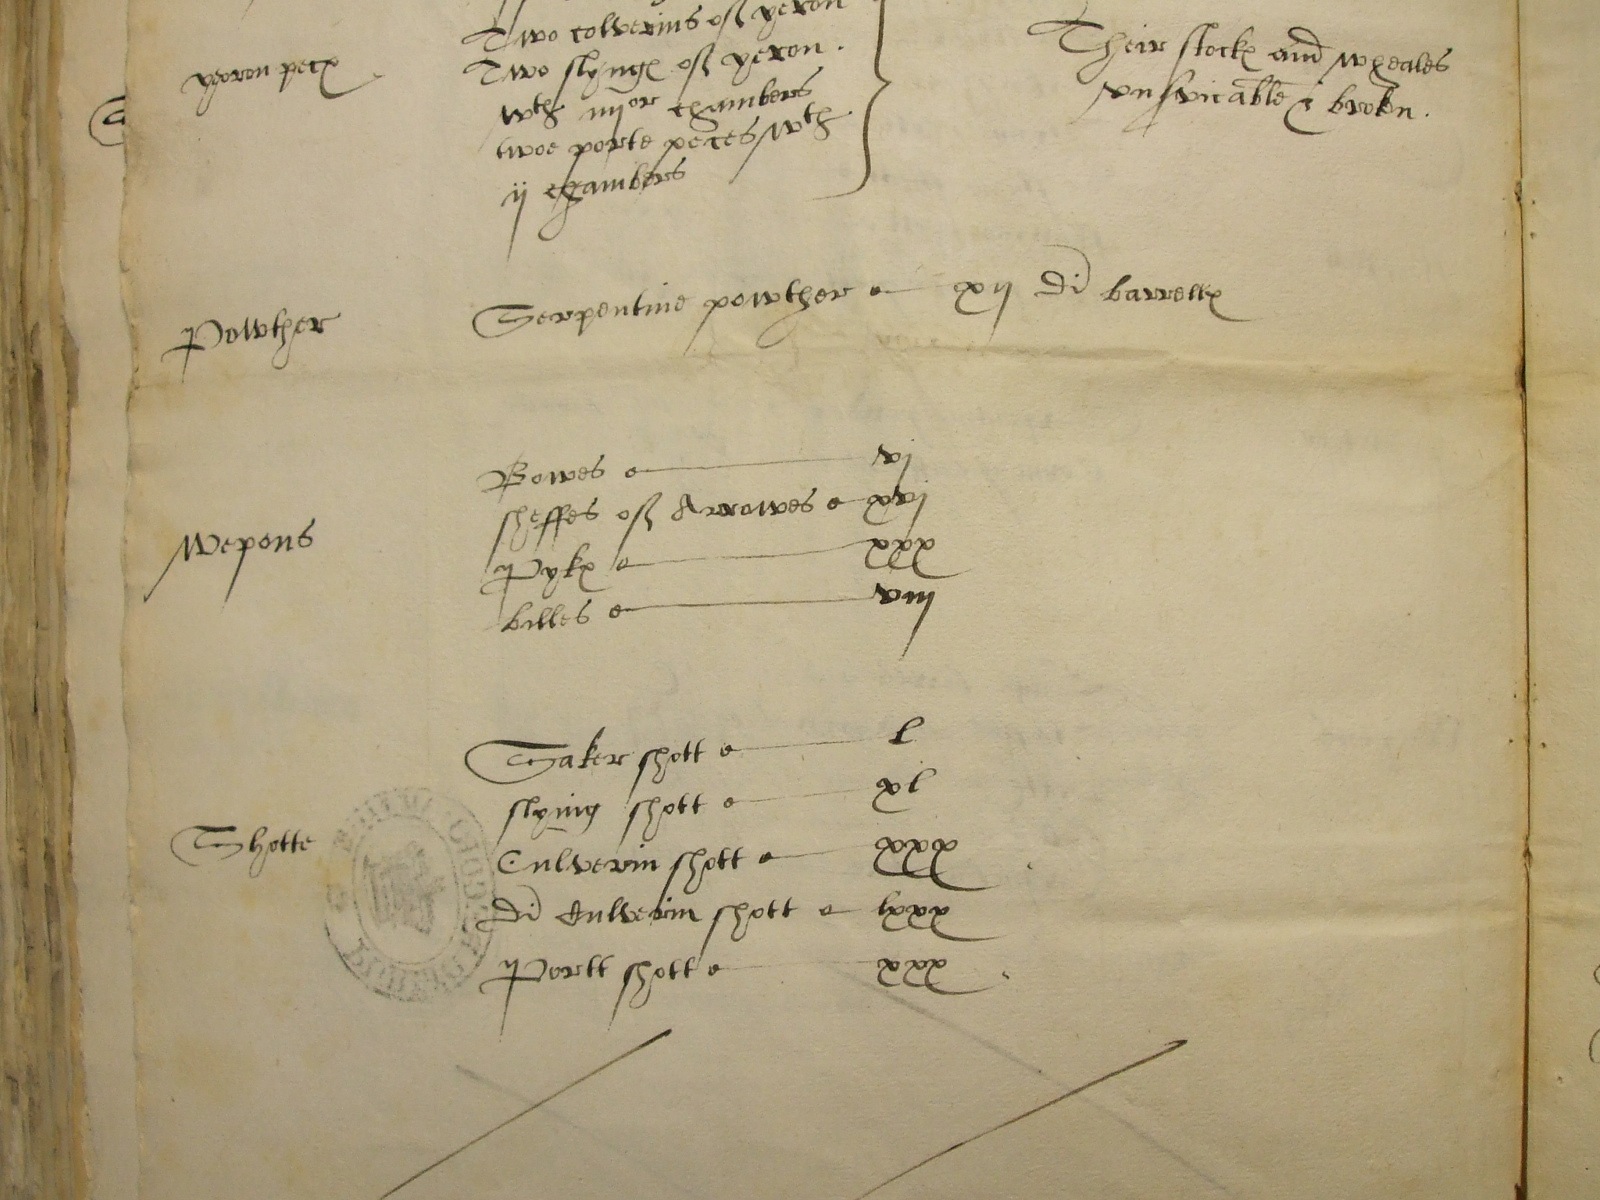 Two colverins off yeron
yeoron peces
Two slynges off yeron .
wth iiijor chambers
twoe porte peces wth
ij chambers
Their stockes and wheales
vnservicable & broken .
Powther
Serpentine powther xij di barrelles
Wepons
Bowes vj
sheffes off Arrowes xvj
Pykes xxx
billes viij
Shotte
Saker shott l
slying shott xl
Culverin shott xxx
di Culverin shott lxxx
Portt shott xxx